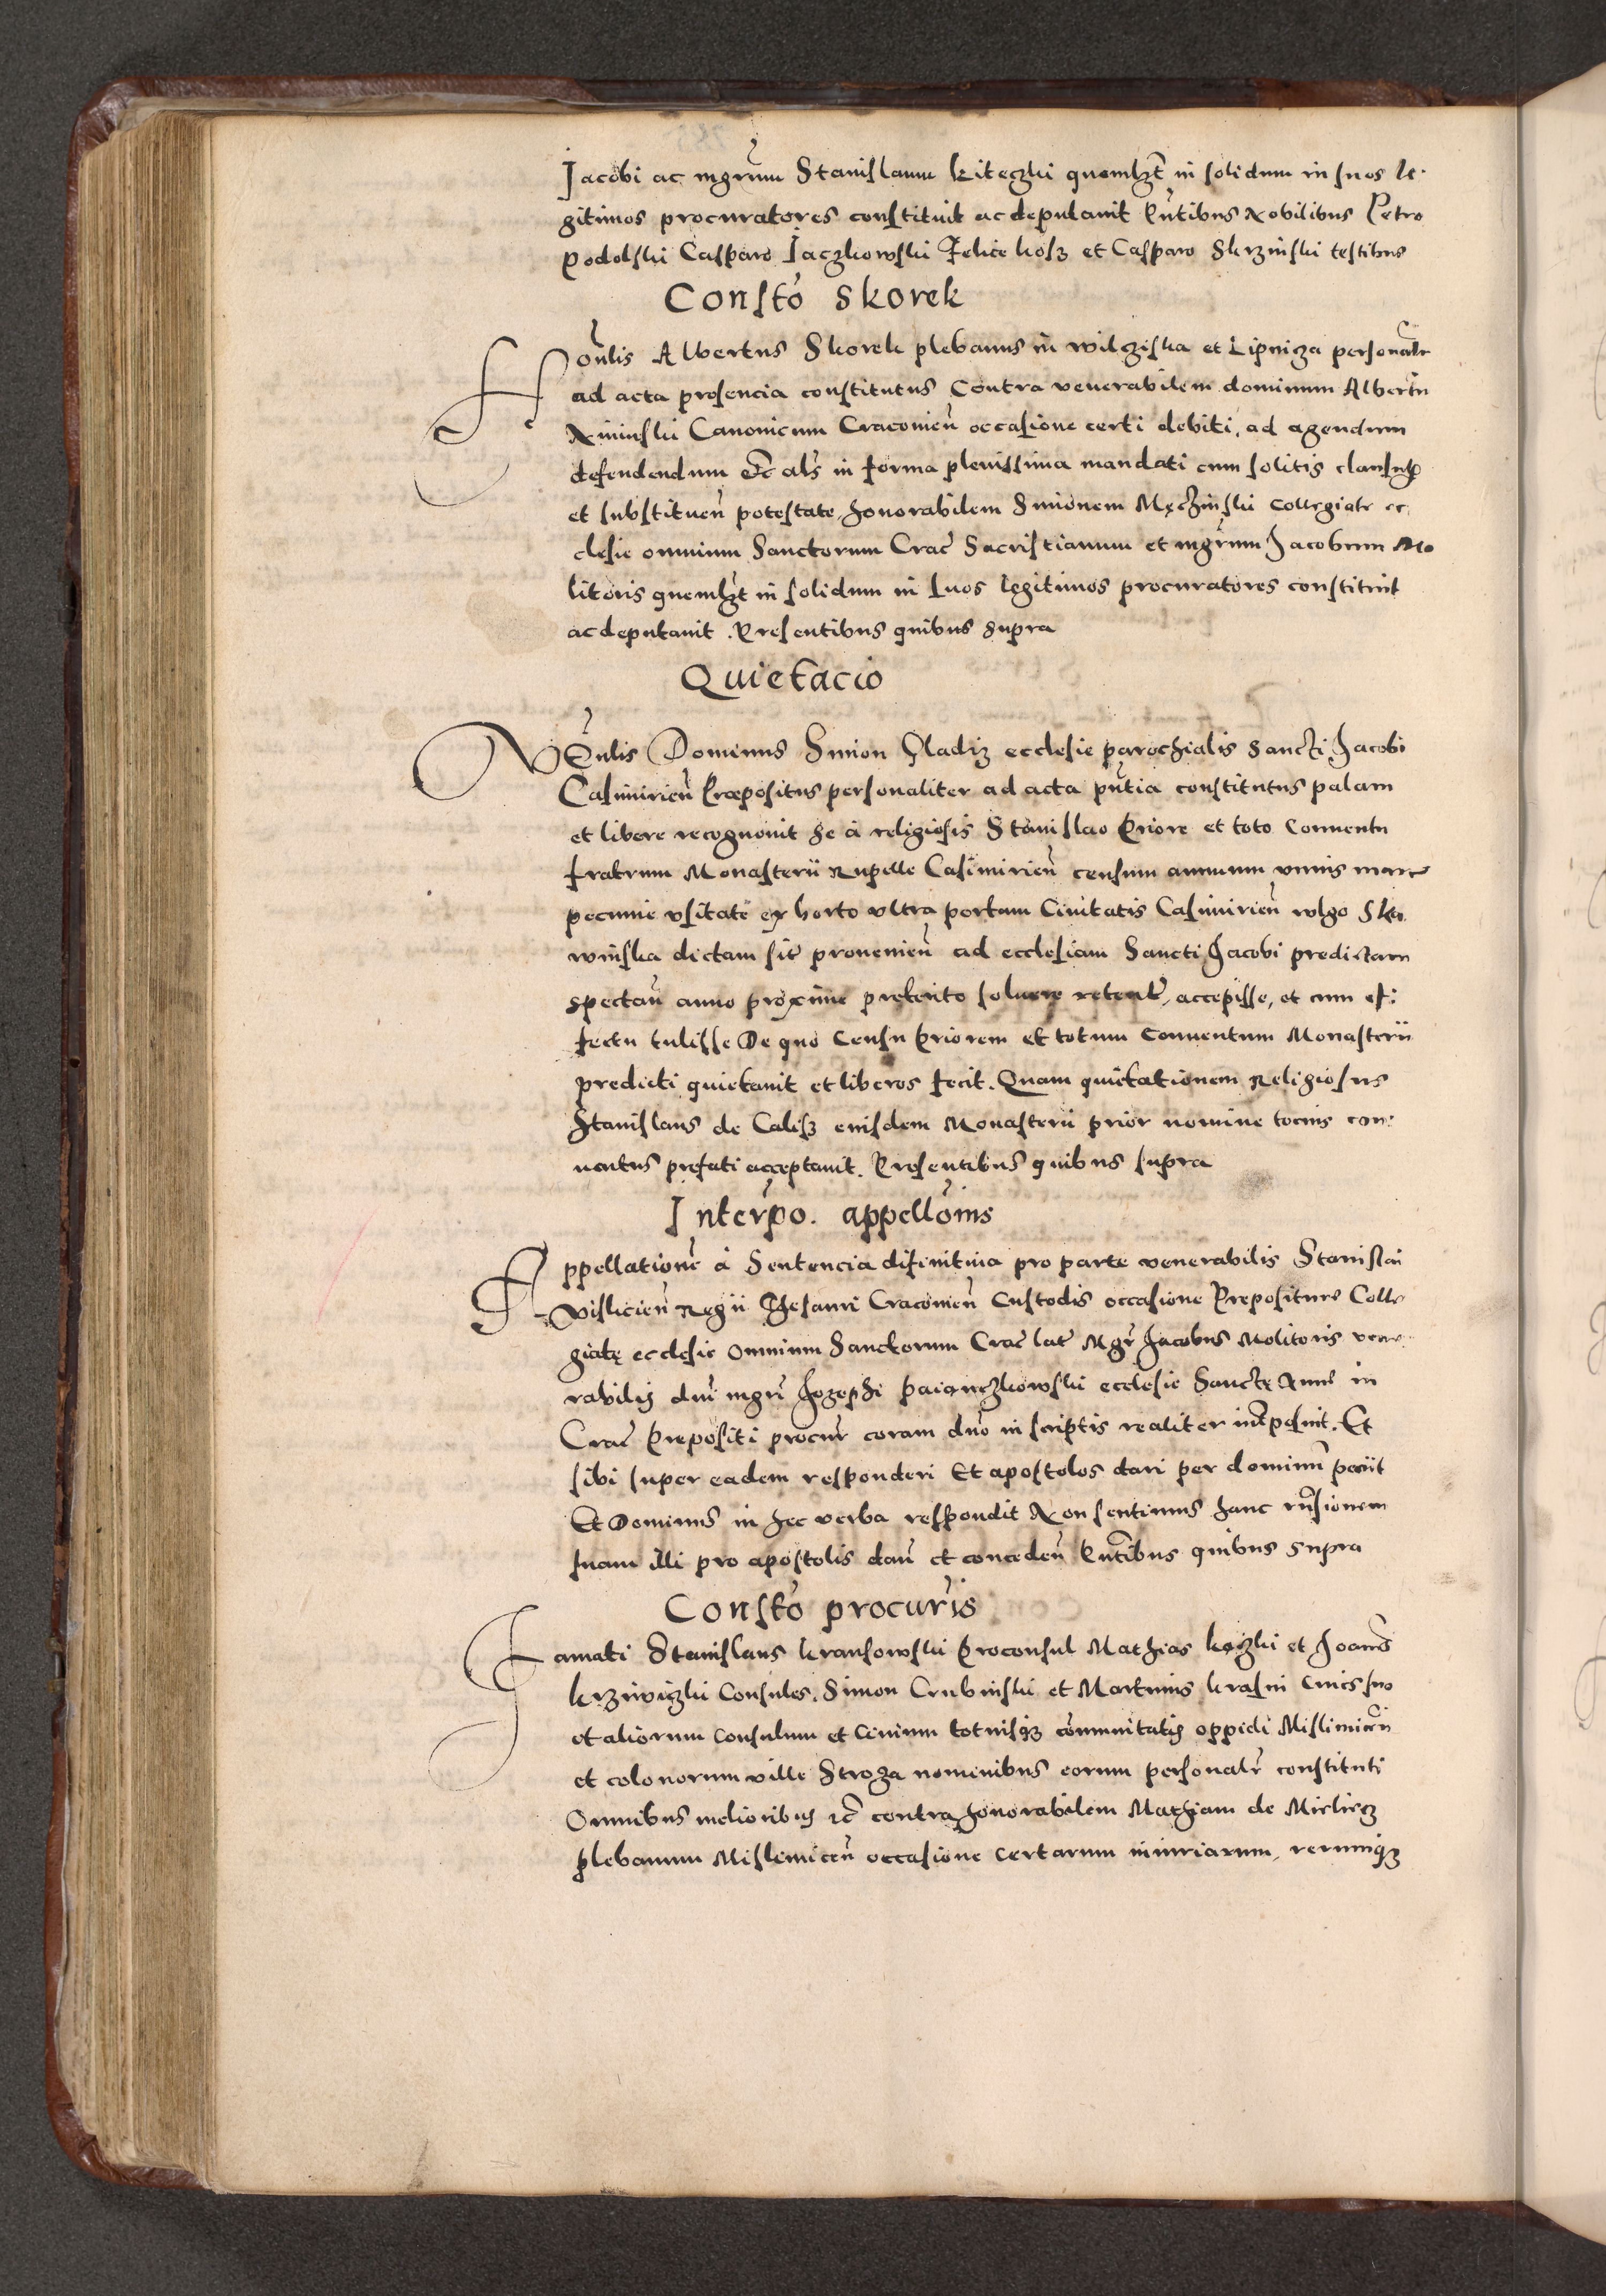 Jacobi ac mgrum Stanislaum kiteczki quemlzt in solidum in suos le-
gitimos procuratores constituit ac deputauit Pntibus Nobilibus Petro
Podolski Casparo Jaczkowski Felice kosz et Casparo Skrzinski testibus
Consto Skorek
Honlis Albertus Skorek plebanus in wilgiska et Lipniza personalr
ad acta presencia constitutus Contra venerabilem dominum Albertu
Nininski Canonicum Cracouien occasione certi debiti, ad agendum
defendendum etc als in forma plenissima mandati cum solitis clausulis
et substituen potestate, honorabilem Simonem Męczinski Collegiate ec
clesie omnium Sanctorum Crac Sacristianum et mgrum Jacobum Mo
litoris quemlzt in solidum in suos legitimos procuratores constituit
ac deputauit. Presentibus quibus supra
Quietacio
VEnlis Dominus Simon Gladiz ecclesie parochialis Sancti Jacobi
Casimirien Præpositus personaliter ad acta pntia constitutus palam
et libere recognouit se a religiosis Stanislao Priore et toto Conuentu
fratrum Monasterii Rupelle Casimirien censum annuum vnius marce
pecunie vsitate ex horto vltra portam Ciuitatis Casimirien wlgo Ska
winska dictam sit prouenien ad ecclesiam Sancti Jacobi predictam
spectan anno proxime preterito soluere retent, accepisse, et cum ef:
fectu tulisse De quo Censu Priorem et totum Conuentum Monasterii
predicti quietauit et liberos fecit. Quam quietationem Religiosus
Stanislaus de Calisz eiusdem Monasterii prior nomine tocius con:
uentus prefati acceptauit. Presentibus quibus supra
Interpo. appellonis
Appellatione a Sentencia difinitiua pro parte venerabilis Stanislai
Vislicien Regii Thesauri Cracouien Custodis occasione Prepositure Colle
giatę ecclesie Omnium Sanctorum Crac lat Mgr Jacobus Molitoris vene
rabilis dni mgri Jozephi paianczkowski ecclesie Sanctę Anne in
Crac Prepositi procur coram dno in scriptis realiter interposuit. Et
sibi super eadem responderi Et apostolos dari per dominu peciit
Et Dominus in hec verba respondit Non sentimus hanc rnsionem
suam illi pro apostolis dan et conceden Pntibus quibus supra
Consto procuris
Famati Stanislaus kransowski Proconsul Mathias koczki et Joanes
krziwiczki Consules, Simon Crubinski et Martinus krasni Ciues suo
et aliorum Consulum et Ciuium totiusqz comunitatis oppidi Mislimicen
et colonorum ville Stroza nominibus eorum personalr constituti
Omnibus melioribus etc contra honorabilem Mathiam de
plebanum Mislimicen occasione certarum iniuriarum, rerumqz